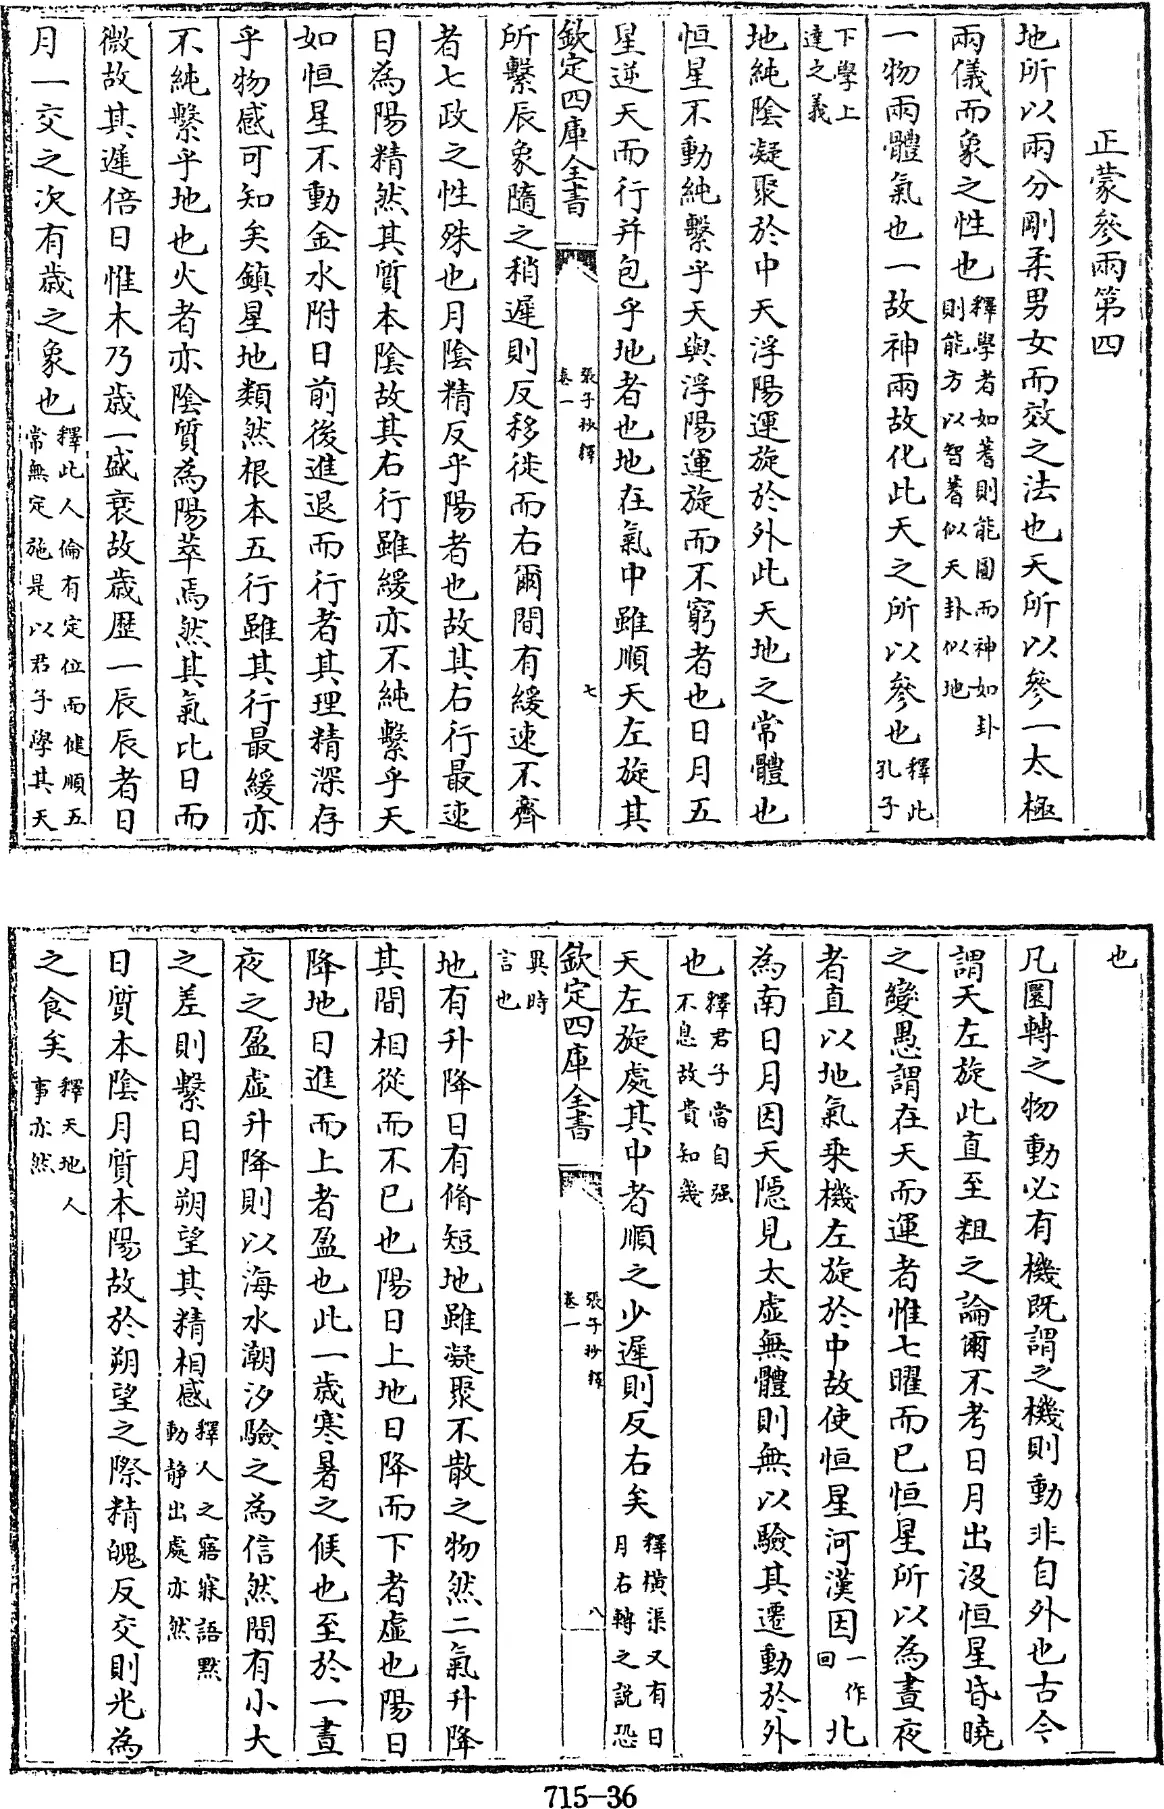 正蒙參兩第四
地所以兩分剛柔男女而效之法也天所以參一太極
兩儀而象之性也釋學者如蓍則能圓而神如卦則能方以智蓍似天卦似地
一物兩體氣也一故神兩故化此天之所以參也釋此孔子
下學上達之義
地純陰凝聚於中天浮陽運旋於外此天地之常體也
恒星不動純繫乎天與浮陽運旋而不窮者也日月五
星逆天而行并包乎地者也地在氣中雖順天左旋其
欽定四庫全書
張子抄釋
卷一
七
所繫辰象隨之稍遲則反移徙而右爾間有緩速不齊
者七政之性殊也月陰精反乎陽者也故其右行最速
日為陽精然其質本陰故其右行雖緩亦不純繫乎天
如恒星不動金水附日前後進退而行者其理精深存
乎物感可知矣鎮星地類然根本五行雖其行最緩亦
不純繫乎地也火者亦陰質為陽萃焉然其氣比日而
微故其遲倍日惟木乃歲一盛衰故歲歴一辰辰者日
月一交之次有歲之象也釋此人倫有定位而健順五常無定施是以君子學其天
也
凡圜轉之物動必有機既謂之機則動非自外也古今
謂天左旋此直至粗之論爾不考日月出沒恒星昏曉
之變愚謂在天而運者惟七曜而已恒星所以為晝夜
者直以地氣乘機左旋於中故使恒星河漢因一作回北
為南日月因天隱見太虛無體則無以驗其遷動於外
也釋君子當自强不息故貴知幾
天左旋處其中者順之少遲則反右矣釋橫渠又有日月右轉之說恐
欽定四庫全書
張子抄釋
卷一
八
異時言也
地有升降日有脩短地雖凝聚不散之物然二氣升降
其間相從而不已也陽日上地日降而下者虛也陽日
降地日進而上者盈也此一歲寒暑之候也至於一晝
夜之盈虛升降則以海水潮汐驗之為信然間有小大
之差則繫日月朔望其精相感釋人之寤寐語默動静出處亦然
日質本陰月質本陽故於朔望之際精魄反交則光為
之食矣釋天地人事亦然
715-36